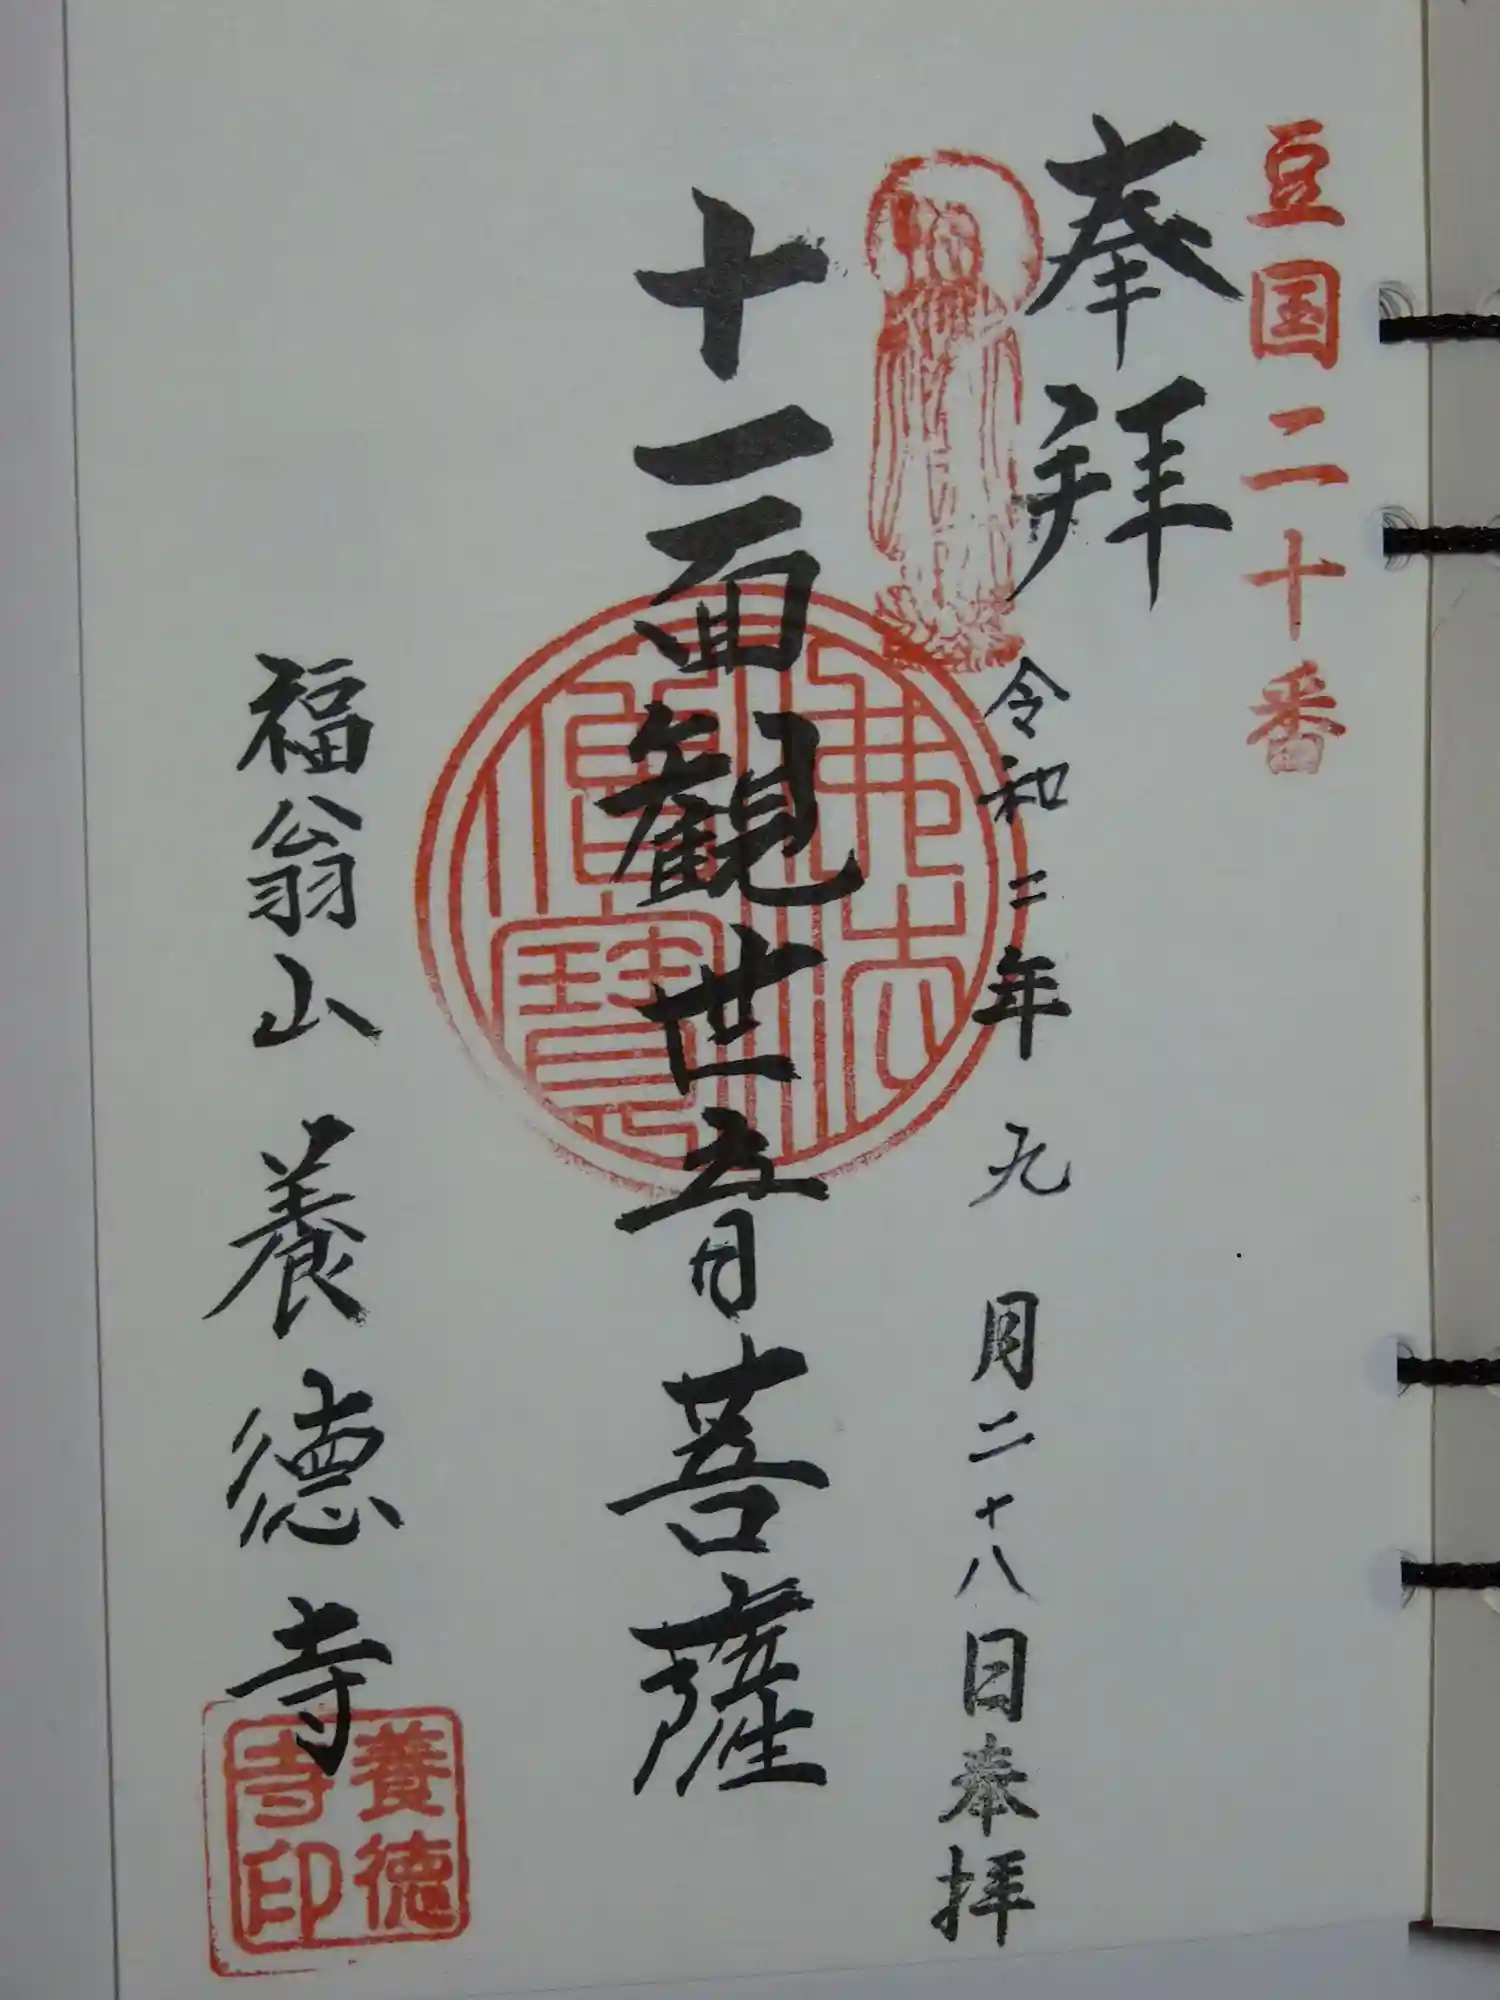 豆国二十番
奉拝
令和二年九月二十八日奉拝
十一面観世音菩薩
佛法僧寶
福翁山 養徳寺
養徳寺印